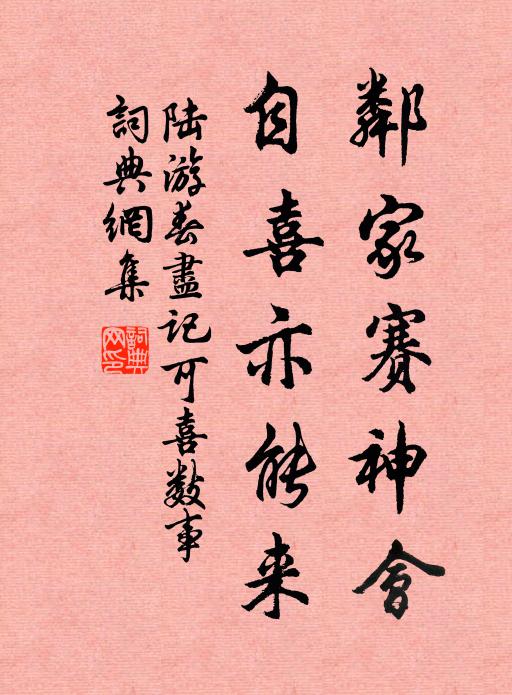 鄰家賽神會
自喜亦能来
陆游春盡记可喜数事
詞典網集
詞典网印